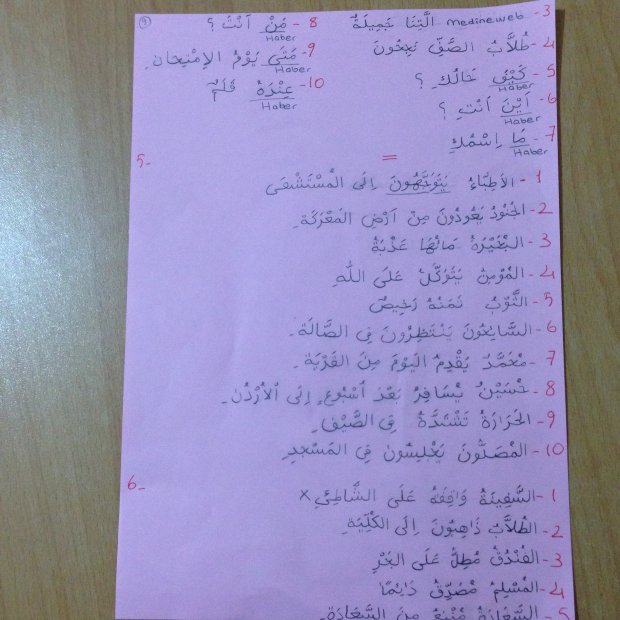 9
3- medineweb الَّتِنَا جَمِيلَةٌ
4- طُلَّابُ الصَّفِّ نَجِحُونَ
5- كَيْفَ حَالُكِ ؟
Haber
6- اَيْنَ اَنْتِ ؟
Haber
7- مَا اِسْمُكِ
Haber
8- مَنْ اَنْتَ ؟
Haber
9- مَتَى يَوْمُ الإِمْتِحَانِ.
Haber
10- عِنْدَهُ قَلَمٌ
Haber
=
5-
1- الأَطِبَّاءُ يَتَوَجَّهُونَ اِلَى الْمُسْتَشْفَى
2- الجُنُودُ يَعُودُونَ مِنْ اَرْضِ المَعْرَكَةِ.
3- البُحَيْرَةُ مَائُهَا عَذْبَةٌ
4- المُؤمِنُ يَتَوَكَّلُ عَلَى اللّٰهِ
5- الثَّوْبُ ثَمَنُهُ رَخِيصٌ
6- السَّايِحُونَ يَنْتَظِرُونَ فِي الصَّالَةِ.
7- مُحَمَّدٌ يَقْدِمُ اليَوْمَ مِنَ القَرْيَةِ.
8- حُسَيْنٌ يُسَافِرُ بَعْدَ اُسْبُوعٍ اِلَى الأُرْدُنِ.
9- الحَرَارَةُ تَشْتَدَّةُ فِي الصَّيْفِ.
10- المُصَلُّونَ يَجْلِسُونَ فِي المَسْجِدِ
6-
1- السَّفِينَةُ وَاقِفَةٌ عَلَى الشَّاطِئِ x
2- الطُّلَابُ ذَاهِبُونَ اِلَى الكُلِّيَّةِ.
3- الفُنْدُقُ مُطِلٌّ عَلَى البَحْرِ
4- المُسْلِمُ مُصَدِّقٌ دَائِمًا
5- السَّعَادَةُ مِنَ السَّعَادَةِ.